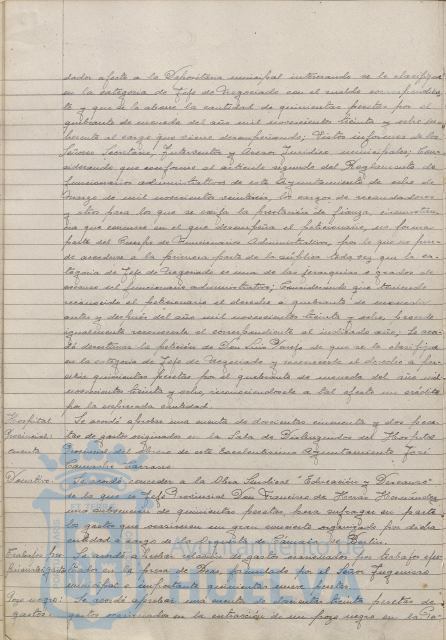 dador afecto a la Depositaría municipal interesando se le clasifique
en la categoría de Jefe de Negociado con el sueldo correspondien
te y que se le abone la cantidad de quinientas pesetas por el
quebranto de moneda del año mil novecientos treinta y ocho
al cargo que viene desempeñando; Vistos informes de los
Señores Secretario, Interventor y Asesor Jurídico municipales; Con
siderando que conforme al artículo segundo del Reglamento de
funcionarios administrativos de este Ayuntamiento de ocho de
Marzo de mil novecientos veintiseis, los cargos de recaudadores
y otros para los que se exija la prestación de fianza, circunstan
cia que concurre en el que desempeña el peticionario, no forma
parte del Cuerpo de Funcionarios Administrativos, por lo que no pue
de accederse a la primera parte de la súplica toda vez que la ca
tegoría de Jefe de Negociado es una de las jerarquías o grados de
ascenso del funcionario administrativo; Considerando que teniendo
reconocido el peticionario el derecho a quebranto de moneda
antes y después del año mil novecientos treinta y ocho, procede
igualmente reconocerle el correspondiente al indicado año; Se acor
dó desestimar la petición de Don Luis de que se le clasifique
en la categoría de Jefe de Negociado y reconocerle el derecho a per
cibir quinientas pesetas por el quebranto de moneda del año mil
novecientos treinta y ocho, reconociéndosele a tal efecto un crédito
por la expresada cantidad.
Hospital Se acordó aprobar una cuenta de doscientas cincuenta y dos pese
Provincial tas de gastos originados en la Sala de Distinguidos del Hospital
cuenta Provincial del obrero de este Excelentísimo Ayuntamiento José
Camacho
Donativo Se acordó conceder a la Obra Sindical "Educación y Descanso"
de la que es Jefe Provincial Don Francisco de Hernández
una subvención de quinientas pesetas para sufragar en parte
los gastos que ocasionen un gran concierto organizado por dicha
entidad a cargo de la Orquesta de Cámara de Berlín.
Trabajos Se acordó aprobar relación de gastos ocasionados por trabajos efec
tuados en la presa de Beas, formulado por el Señor Ingeniero
municipal e importante quinientas nueve pesetas.
Pozo negro: Se acordó aprobar una cuenta de doscientas treinta pesetas de
gastos gastos ocasionados en la extracción de un pozo negro en la
Ayuntamiento de
HUELVA